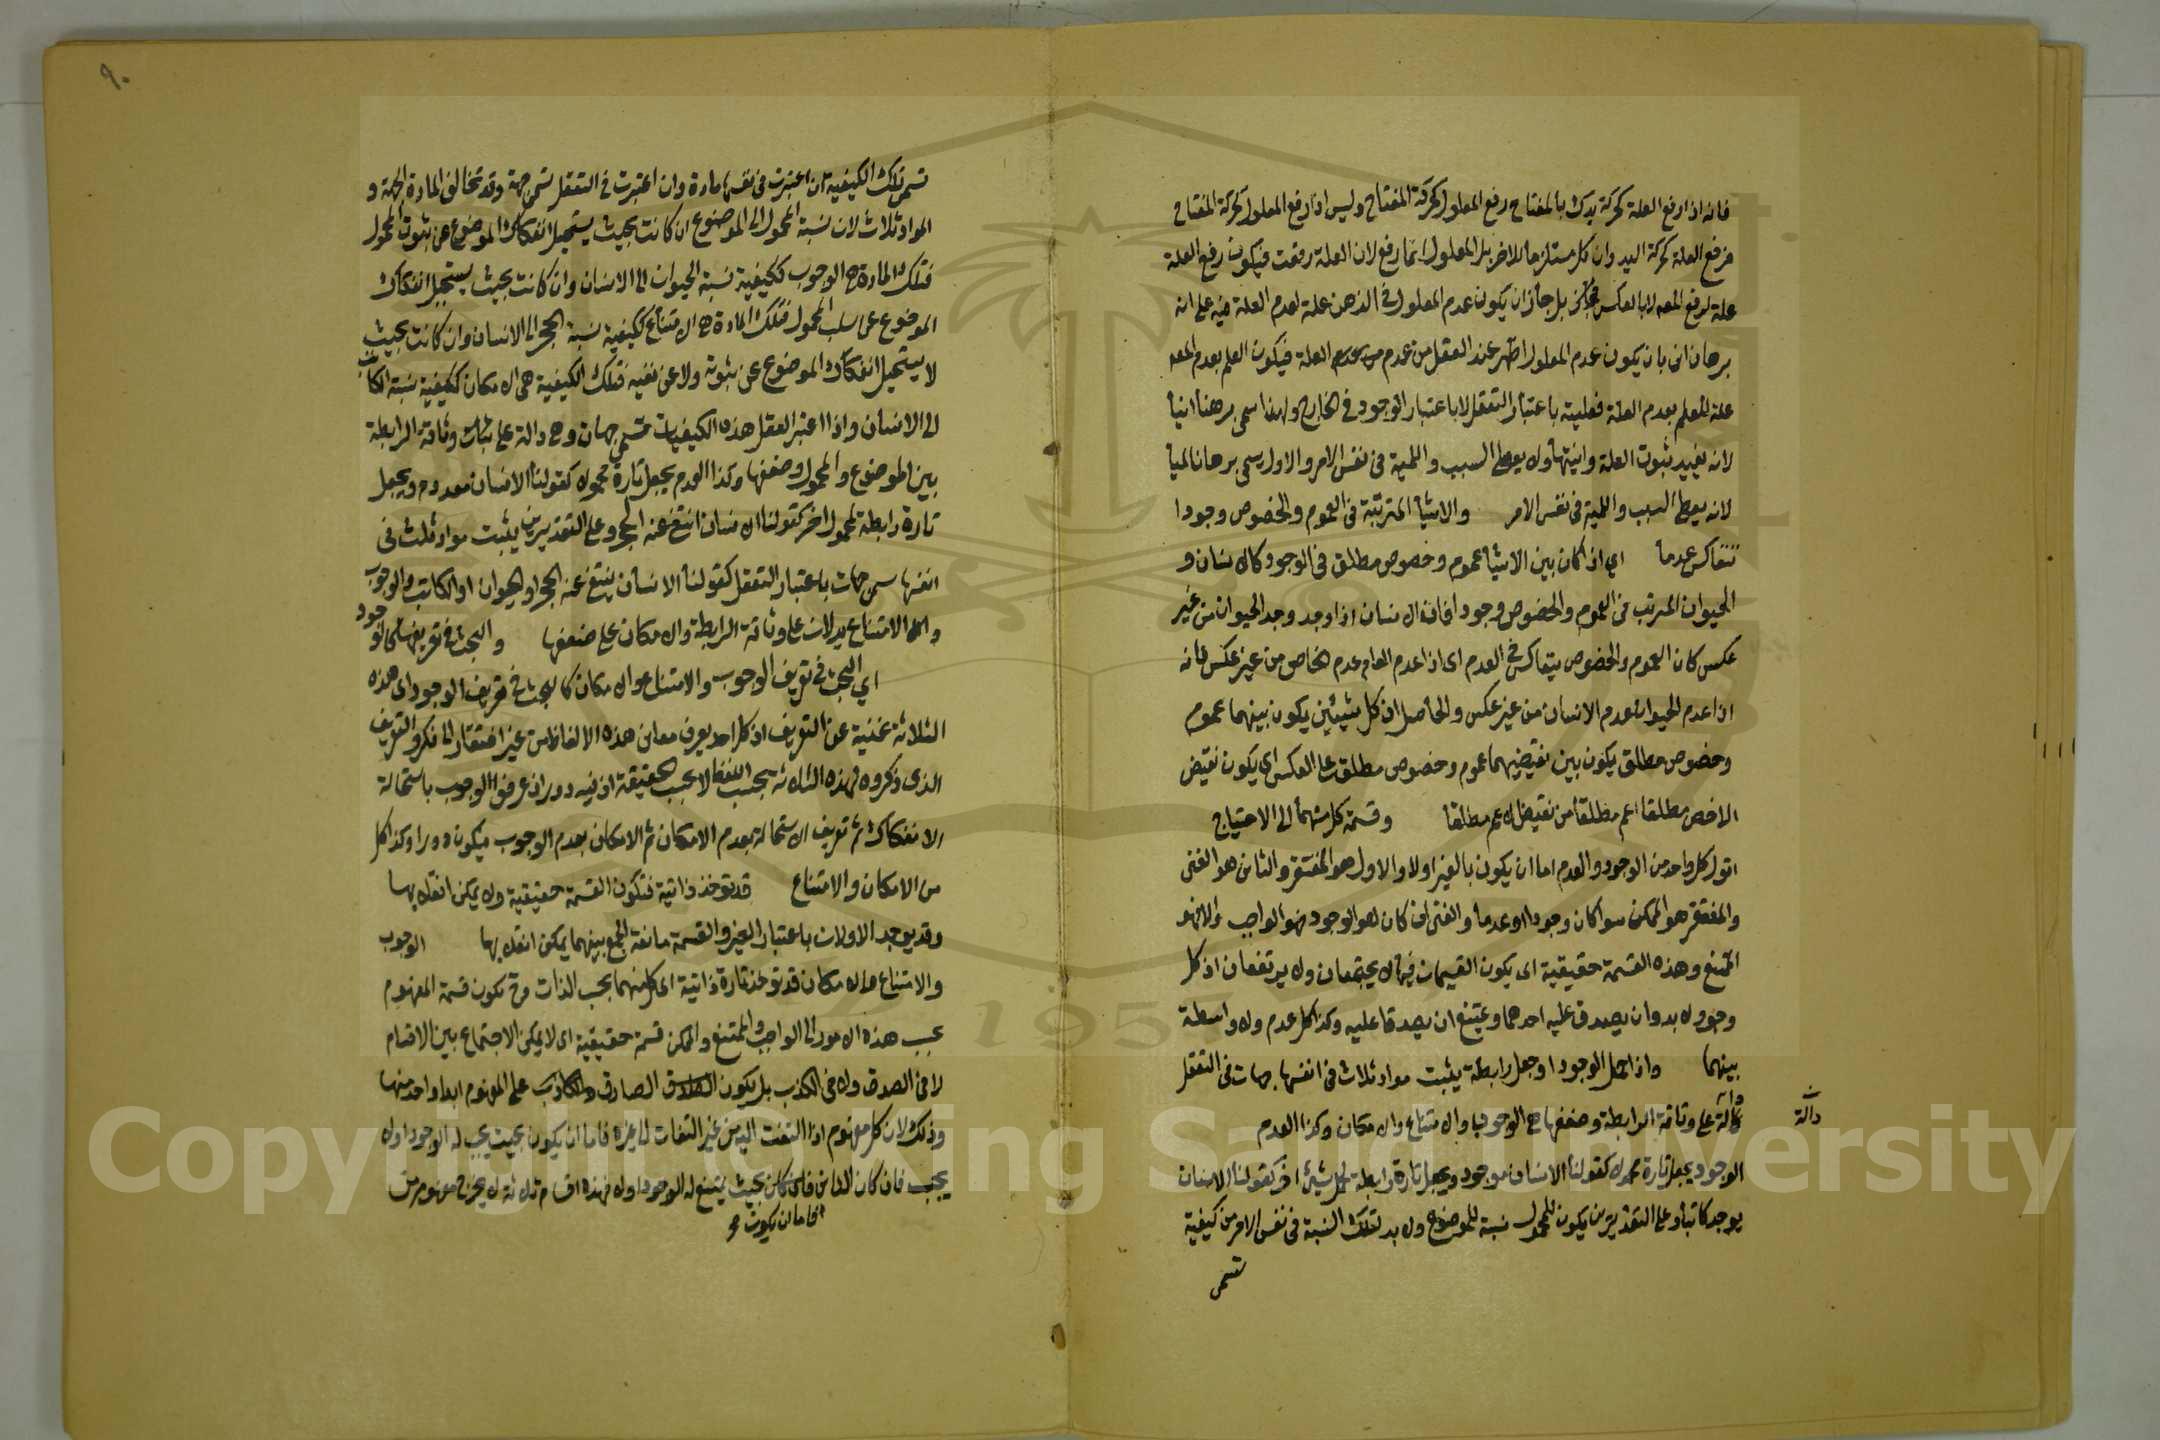 فانه اذا رفع العلة كحركة يدك بالمفتاح رفع المعلول كحركة المفتاح وليس اذا رفع المعلول كحركة المفتاح
فرفع العلة كحركة اليد وان كل مستلزما للاخر بل المعلول انما رفع لان العلة رفعت فيكون رفع العلة
علة لرفع المعه لا بالعكس بل جاز ان يكون عدم المعلول فى الذهن علة لعدم العلة فيه على انه
برهان انى بان يكون عدم المعلول اظهر عند العقل من عدم العلة فيكون العلم بعدم المعه
علة للعلم بعدم العلة فعليته باعتبار التعقل لا باعتبار الوجود فى الخارج ولهذا سمى برهنا انيا
لانه يفيد ثبوت العلة وانيتها ولا يعطى السبب واللمية فى نفس الامر والاول يسمى برهانا لميا
لانه يعطى السبب واللمية فى نفس الامر والاشيا المترتبة فى العموم والخصوص وجودا
تتعاكس عدما اي اذا كان بين الاشيا عموم وخصوص مطلق فى الوجود كالانسان و
الحيوان المرتب فى العموم والخصوص وجودا فان الانسان اذا وجد وجد الحيوان من غير
عكس كان العموم والخصوص يتعاكس فى العدم اى اذا عدم العام عدم الخاص من غير عكس فانه
اذا عدم الحيوان عدم الانسان من غير عكس والحاصل ان كل شيئين يكون بينهما عموم
وخصوص مطلق يكون بين نقيضيهما عموم وخصوص مطلق على العكس اى يكون نقيض
الاخص مطلقا اعم مطلقا من نقيض الاعم مطلقا وقسمة كل منهما الى الاحتياج
اقول كل واحد من الوجود والعدم اما ان يكون بالغير اولا والاول هو المفتقر والثانى هو الغنى
والمفتقر هو الممكن سوا كان وجودا او عدما والغنى ان كان هو الوجود فهو الواجب والا فهو
الممتنع وهذه القسمة حقيقية اى يكون القسيمان فيها لا يجتمعان ولا يرتفعان اذ كل
وجود لا بد وان يصدق عليه احدهما ويمتنع ان يصدقا عليه وكذا كل عدم ولا واسطة
بينهما واذا حمل الوجود او جعل رابطة يثبت مواد ثلاث فى انفسها جهات فى التعقل
دالة على وثاقة الرابطة وضعفها هى الوجوب والامتناع والامكان وكذا العدم
دالة
الوجود يجعل تارة محمولا كقولنا الانسان موجود ويجعل تارة رابطة اخر كقولنا الانسان
يوجد كاتبا وعلى التقديرين يكون للمحمول نسبة للموضوع ولا بد لتلك النسبة فى نفس الامر من كيفية
تسمى
٩٠
تسمى تلك الكيفية ان اعتبرت فى نفسها مادة وان اعتبرت فى التعقل تسمى جهة وقد تخالف المادة الجهة و
المواد ثلاث لان نسبة المحمول الى الموضوع ان كانت بحيث يستحيل انفكاك الموضوع عن ثبوت المحمول
فتلك المادة هى الوجوب ككيفية نسبة الحيوان الى الانسان وان كانت بحيث يستحيل انفكاك
الموضوع عن سلب المحمول فتلك المادة هى الامتناع ككيفية نسبة الحجر الى الانسان وان كانت بحيث
لا يستحيل انفكاك الموضوع عن ثبوته ولا عن نفيه فتلك الكيفية هى الامكان ككيفية نسبة الكاتب
الى الانسان واذا اعتبر العقل هذه الكيفيات تسمى جهات وهى دالة على وثاقة الرابطة
بين الموضوع والمحمول وضعفها وكذا العدم يجعل تارة محمولا كقولنا الانسان معدوم ويجعل
تارة رابطة لمحمول اخر كقولنا الانسان انتفى عنه الحجر وعلى التقديرين يثبت مواد ثلث فى
انفسها جهات باعتبار التعقل كقولنا الانسان ينتفى عنه الحجر او الحيوان او الكاتب والوجوب
والامتناع يدلان على وثاقة الرابطة والامكان على ضعفها والبحث فى تعريفها كالوجود
اي البحث فى تعريف الوجوب والامتناع والامكان كالبحث فى تعريف الوجود اى هذه
الثلاثة غنية عن التعريف اذ كل احد يعرف معانى هذه الالفاظ من غير افتقار الى فكر والتعريف
الذى ذكروه لهذه الثلاثة بحسب اللفظ لا بحسب الحقيقة اذ فيه دور اذ عرفوا الوجوب باستحالة
الانفكاك ثم تعريف الاستحالة بعدم الامكان ثم الامكان بعدم الوجوب فيكون دورا وكذا كل
من الامكان والامتناع قد يؤخذ ذاتية فتكون القسمة حقيقية ولا يمكن انقلابها
وقد يوجد الاولان باعتبار الغير والقسمة مانعة الجمع بينهما يمكن انقلابها الوجوب
والامتناع والامكان قد تؤخذ تارة ذاتية اى كل منهما بحسب الذات وح تكون قسمة المفهوم
بحسب هذه الامور الى الواجب والممتنع والممكن قسمة حقيقية اى لا يمكن الاجتماع بين الاقسام
لا فى الصدق ولا فى الكذب بل يكون الصادق على المفهوم ابدا واحد منها
وذلك لان كل مفهوم اذا التفت اليه من غير التفات الى غيره فاما ان يكون بحيث يجب له الوجود اولا
يجب فان كان الثانى فاما ان يكون بحيث يمتنع له الوجود اولا فهذه اقسام ثلاثة لا يخرج مفهوم من
فاما ان يكون